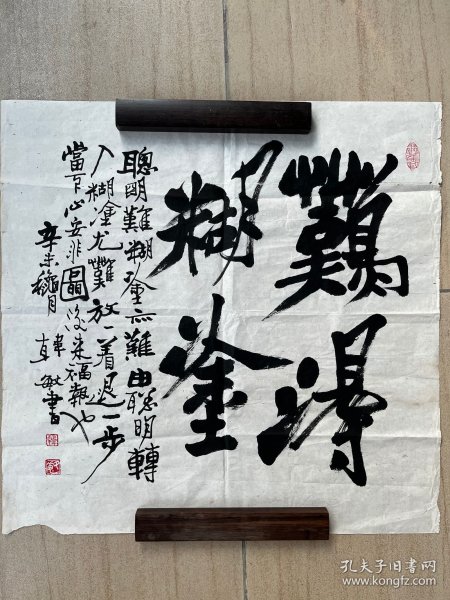 難得
糊塗
聰明難糊塗亦難由聰明轉
入糊塗尤難放一着退一步
當下心安非圖後來福報也
辛未
書
孔夫子旧书网
www.kongfz.com